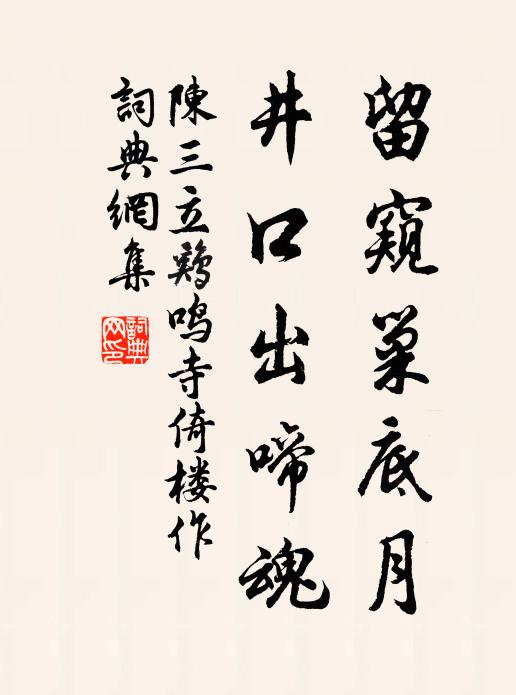 留窺巢底月
井口出啼魂
陳三立鷄鳴寺倚楼作
詞典網集
詞典网印